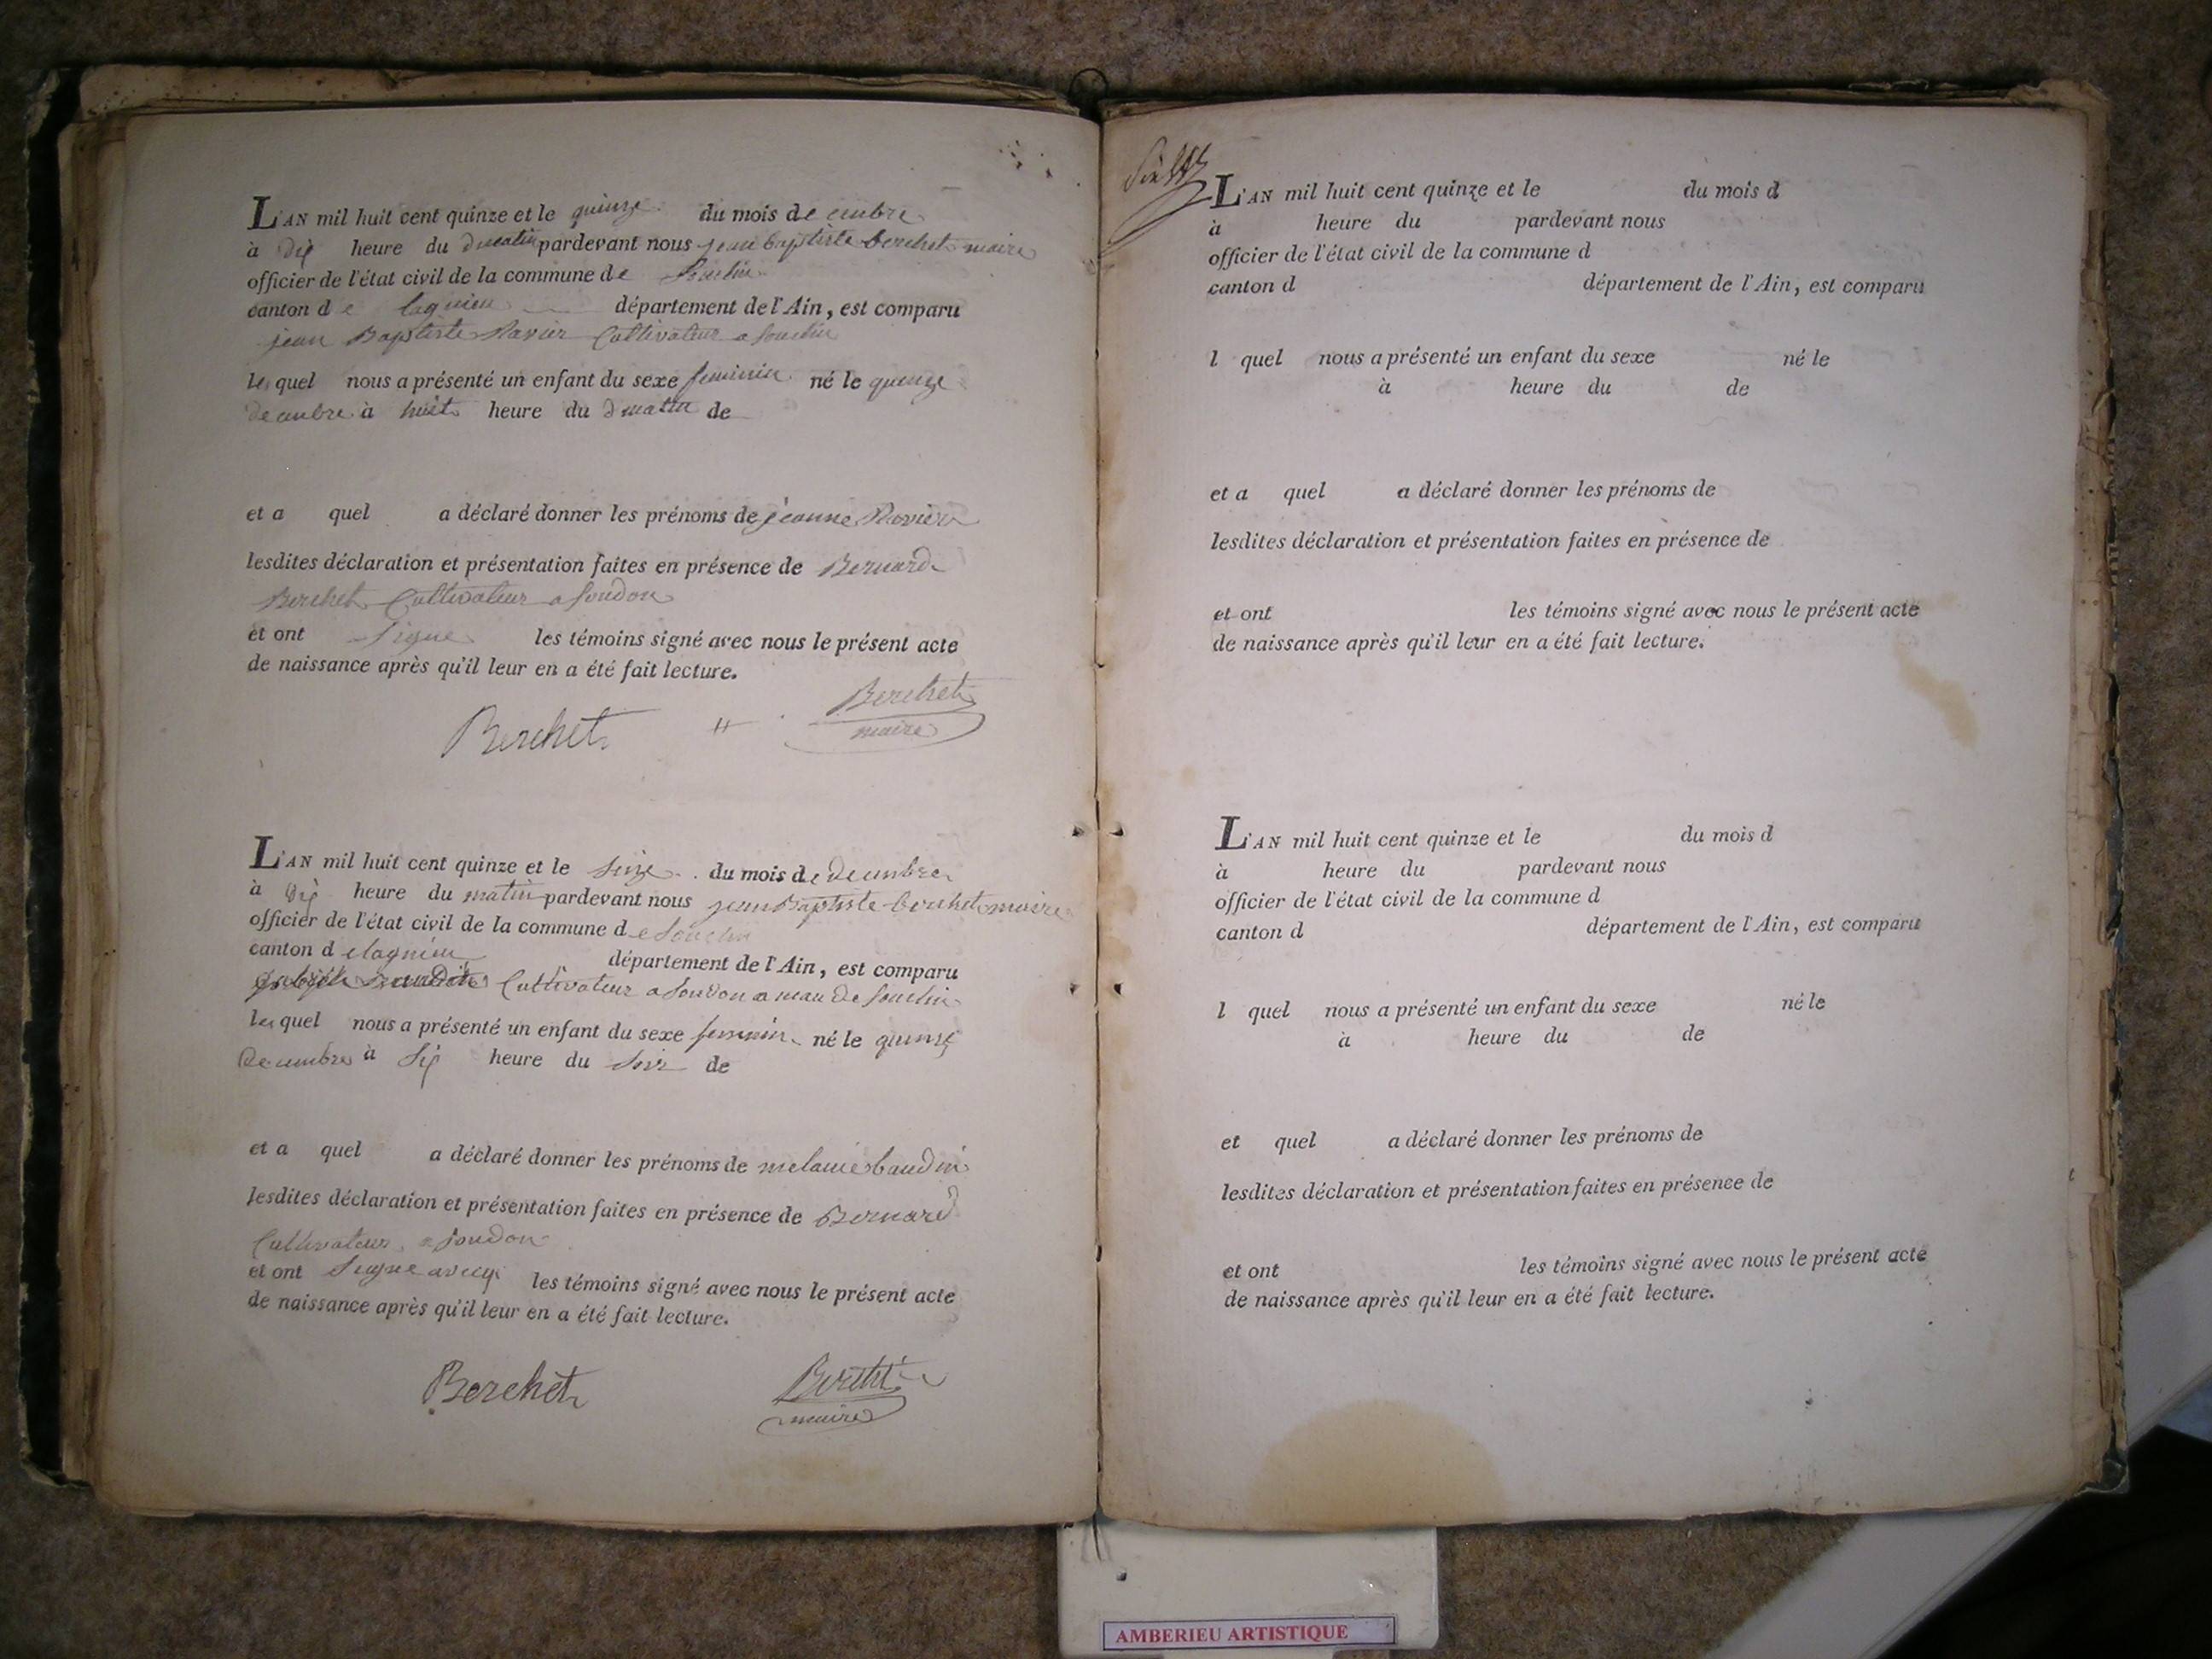 L'AN mil huit cent quinze et le quinze du mois de cembre
à dix heure du du matin pardevant nous jean baptiste berchet maire
officier de l'état civil de la commune de Souclin
canton de lagnieu département de l'Ain, est comparu
jean Baptiste Ravier Cultivateur a souclin
lequel nous a présenté un enfant du sexe feminin né le quinze
decembre à huit heure du du matin de
et a quel a déclaré donner les prénoms de jeanne Ravier
lesdites déclaration et présentation faites en présence de Bernard
Berchet Cultivateur a soudon
et ont signe les témoins signé avec nous le présent acte
de naissance après qu'il leur en a été fait lecture.
Berchet Berchet
maire
L'AN mil huit cent quinze et le seize du mois de decembre
à dix heure du matin pardevant nous jean Baptiste berchet maire
officier de l'état civil de la commune de souclin
canton de lagnieu département de l'Ain, est comparu
Cultivateur a soudon ameau de souclin
lequel nous a présenté un enfant du sexe feminin né le quinze
decembre à six heure du soir de
et a quel a déclaré donner les prénoms de melanie baudin
lesdites déclaration et présentation faites en présence de Bernard
Cultivateur a soudon
et ont signe avecq les témoins signé avec nous le présent acte
de naissance après qu'il leur en a été fait lecture.
Berchet Berchet
maire
L'AN mil huit cent quinze et le du mois d
à heure du pardevant nous
officier de l'état civil de la commune d
canton d département de l'Ain, est comparu
l quel nous a présenté un enfant du sexe né le
à heure du de
et a quel a déclaré donner les prénoms de
lesdites déclaration et présentation faites en présence de
et ont les témoins signé avec nous le présent acte
de naissance après qu'il leur en a été fait lecture.
L'AN mil huit cent quinze et le du mois d
à heure du pardevant nous
officier de l'état civil de la commune d
canton d département de l'Ain, est comparu
l quel nous a présenté un enfant du sexe né le
à heure du de
et quel a déclaré donner les prénoms de
lesdites déclaration et présentation faites en présence de
et ont les témoins signé avec nous le présent acte
de naissance après qu'il leur en a été fait lecture.
AMBERIEU ARTISTIQUE